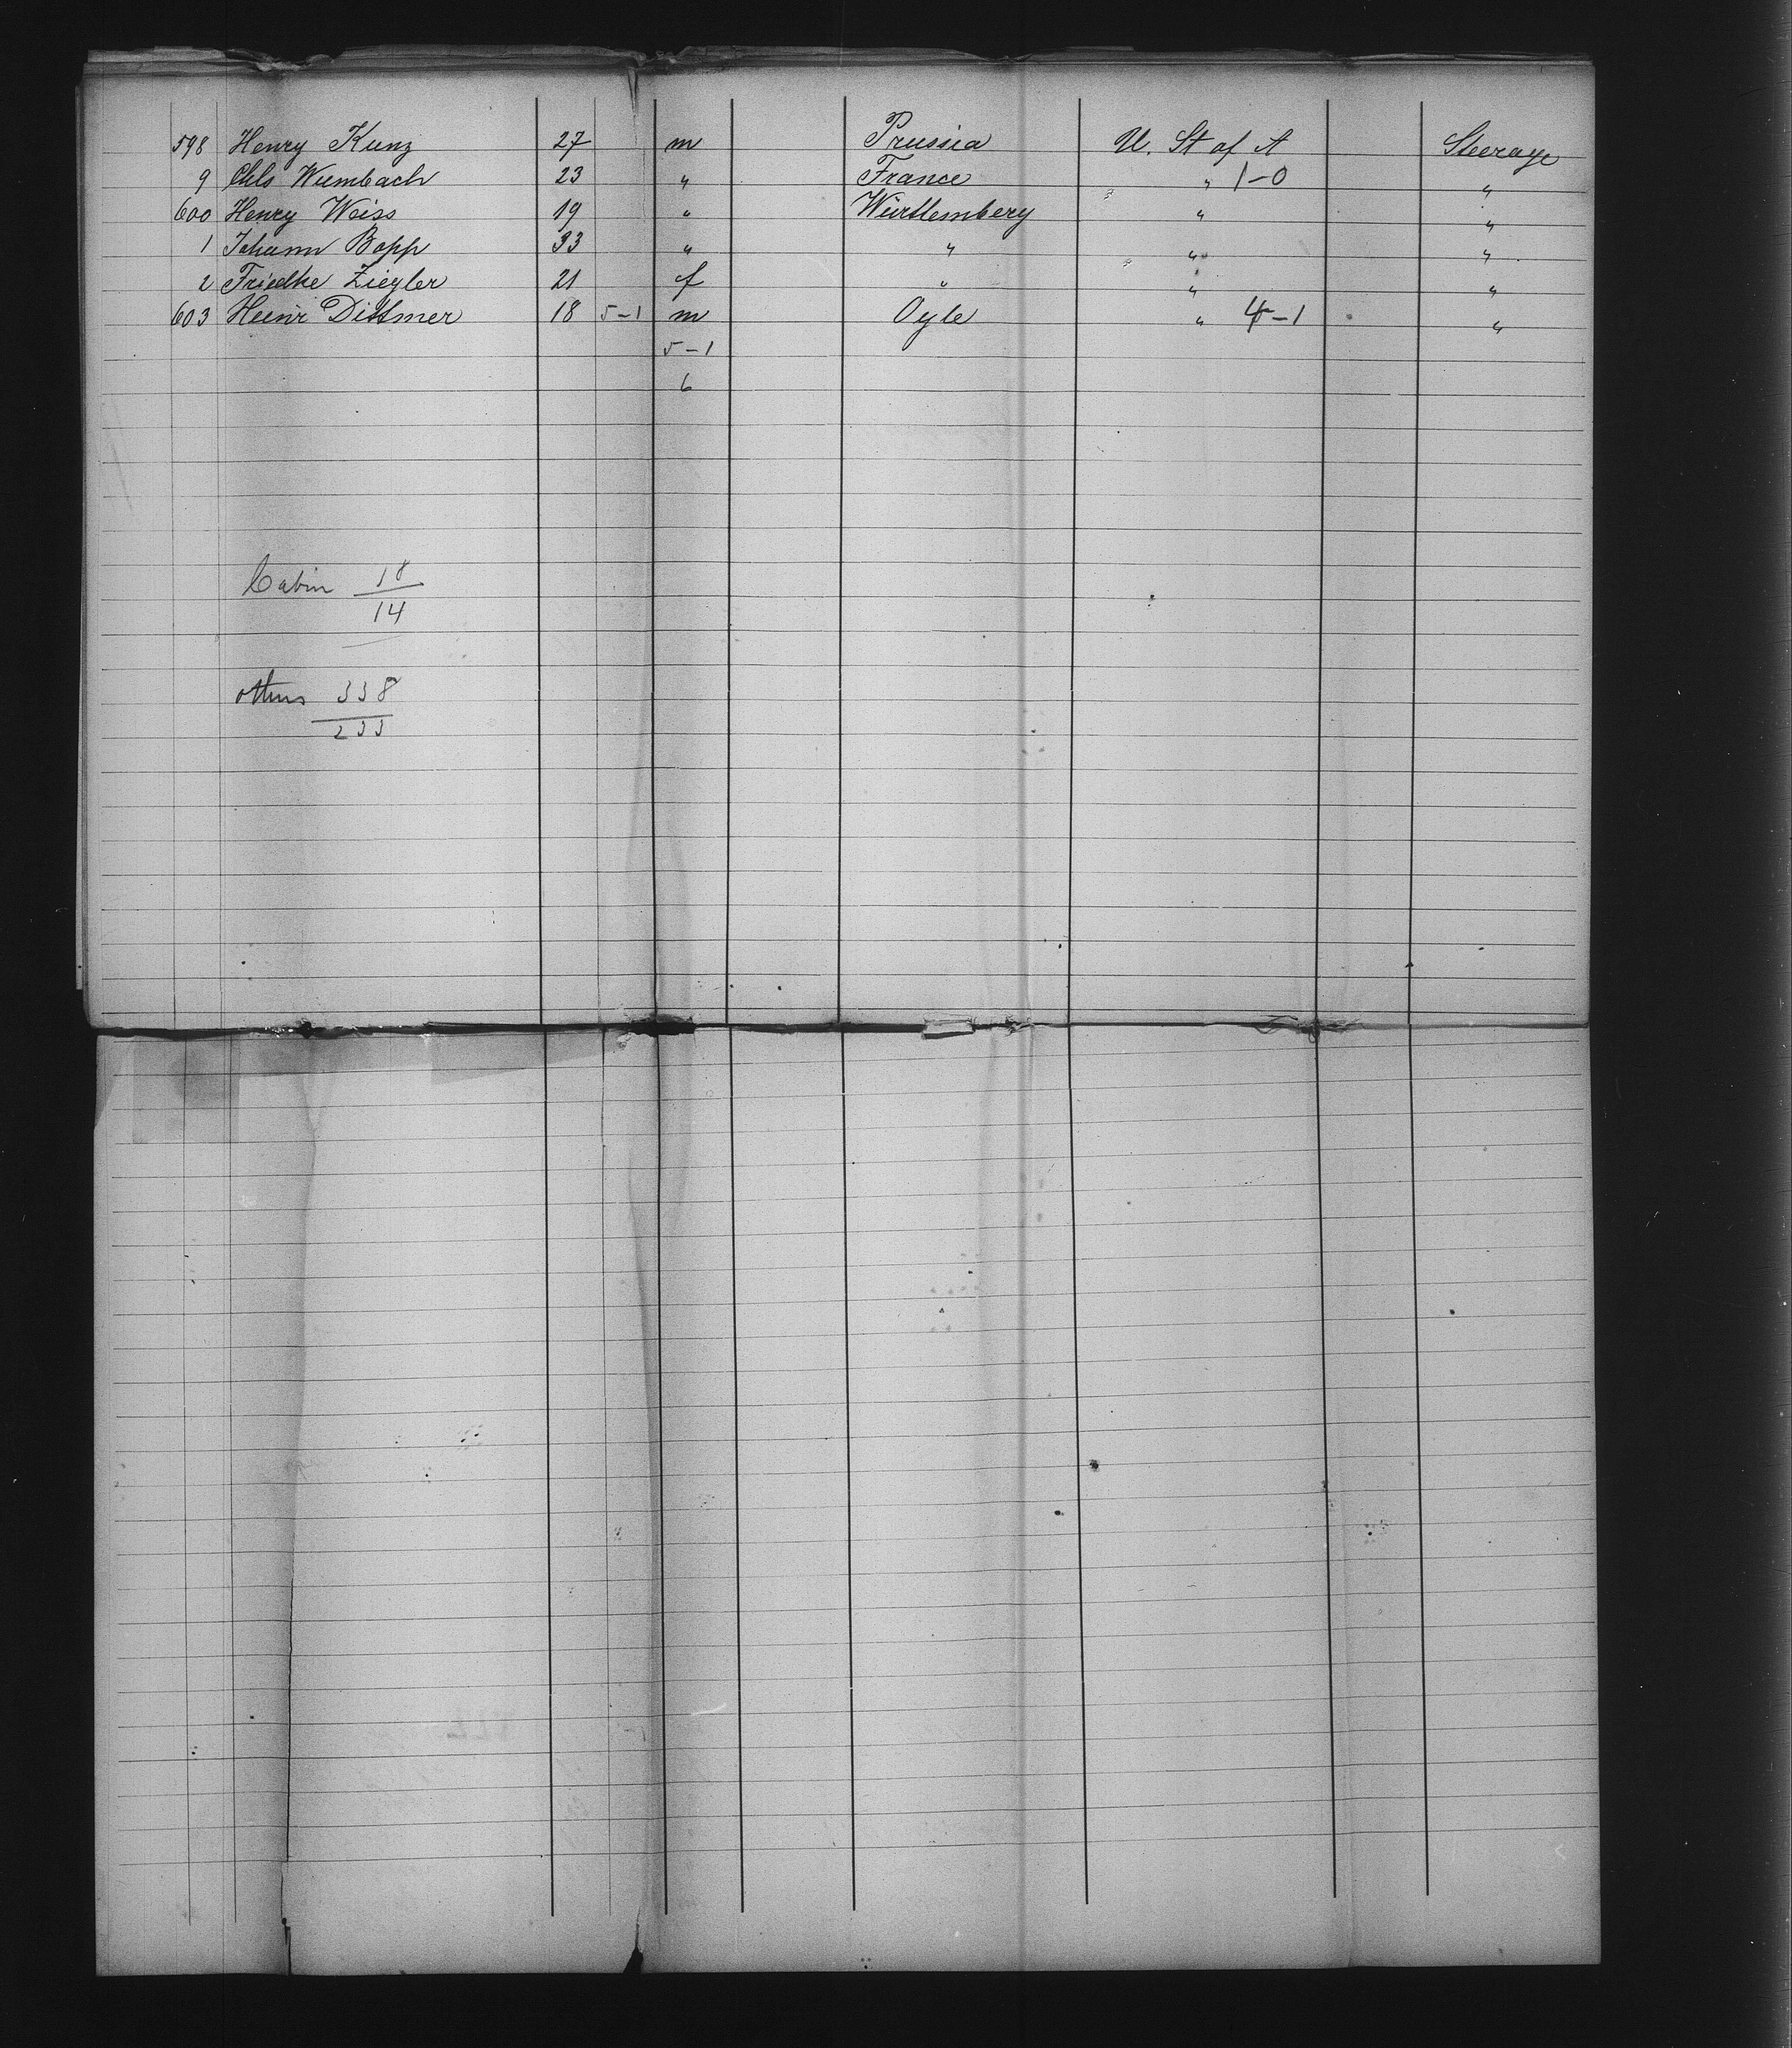 598 Henry Kunz 27 m Prussia U. St of A Steerage
9 Chls Wumbach 23 " France " 1-0 "
600 Henry Weiss 19 " Würtlemberg " "
1 Johann Bopp 33 " " " "
2 Friedke Ziegler 21 f " " "
603 Heinr Dittmer 18 5-1 m Oyle " 4-1 "
5-1
6
Cabin 18
14
others 338
233